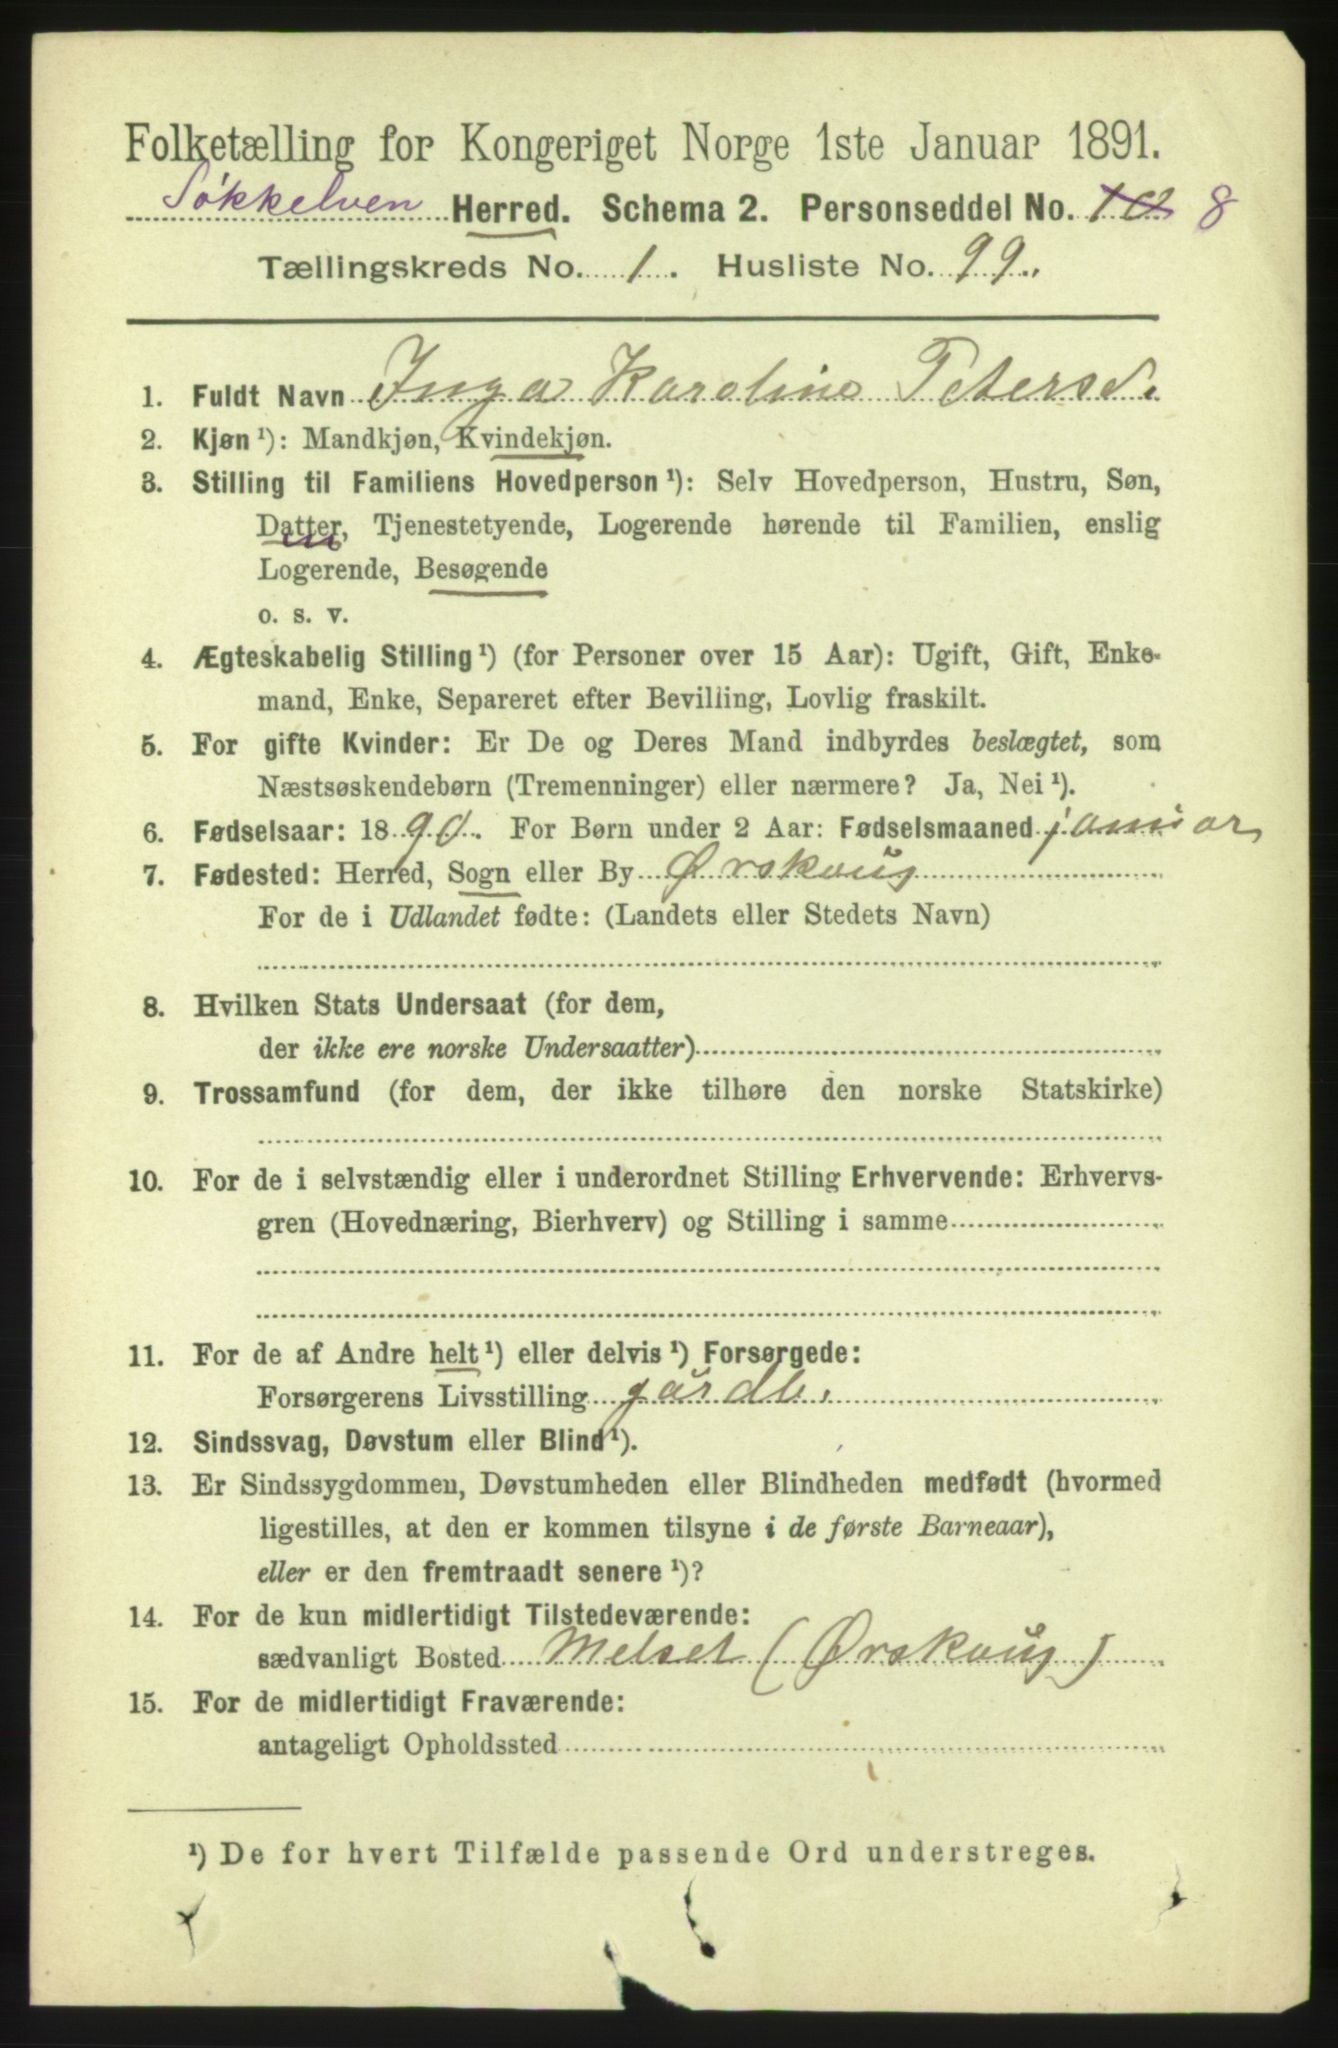 Folketælling for Kongeriget Norge 1ste Januar 1891.
Søkkelven Herred. Schema 2. Personseddel No. 10 8
Tællingskreds No. 1. Husliste No. 99.
1. Fuldt Navn Inga Karoline Petersd.
2. Kjøn ¹): Mandkjøn, Kvindekjøn.
3. Stilling til Familiens Hovedperson ¹): Selv Hovedperson, Hustru, Søn,
Datter, Tjenestetyende, Logerende hørende til Familien, enslig
Logerende, Besøgende
o. s. v.
4. Ægteskabelig Stilling ¹) (for Personer over 15 Aar): Ugift, Gift, Enke-
mand, Enke, Separeret efter Bevilling, Lovlig fraskilt.
5. For gifte Kvinder: Er De og Deres Mand indbyrdes beslægtet, som
Næstsøskendebørn (Tremenninger) eller nærmere? Ja, Nei ¹).
6. Fødselsaar: 1890. For Børn under 2 Aar: Fødselsmaaned januar
7. Fødested: Herred, Sogn eller By Ørskoug
For de i Udlandet fødte: (Landets eller Stedets Navn)
8. Hvilken Stats Undersaat (for dem,
der ikke ere norske Undersaatter)
9. Trossamfund (for dem, der ikke tilhøre den norske Statskirke)
10. For de i selvstændig eller i underordnet Stilling Erhvervende: Erhvervs-
gren (Hovednæring, Bierhverv) og Stilling i samme
11. For de af Andre helt ¹) eller delvis ¹) Forsørgede:
Forsørgerens Livsstilling gårdb.
12. Sindssvag, Døvstum eller Blind ¹).
13. Er Sindssygdommen, Døvstumheden eller Blindheden medfødt (hvormed
ligestilles, at den er kommen tilsyne i de første Barneaar),
eller er den fremtraadt senere ¹)?
14. For de kun midlertidigt Tilstedeværende:
sædvanligt Bosted Melset (Ørskoug)
15. For de midlertidigt Fraværende:
antageligt Opholdssted
¹) De for hvert Tilfælde passende Ord understreges.